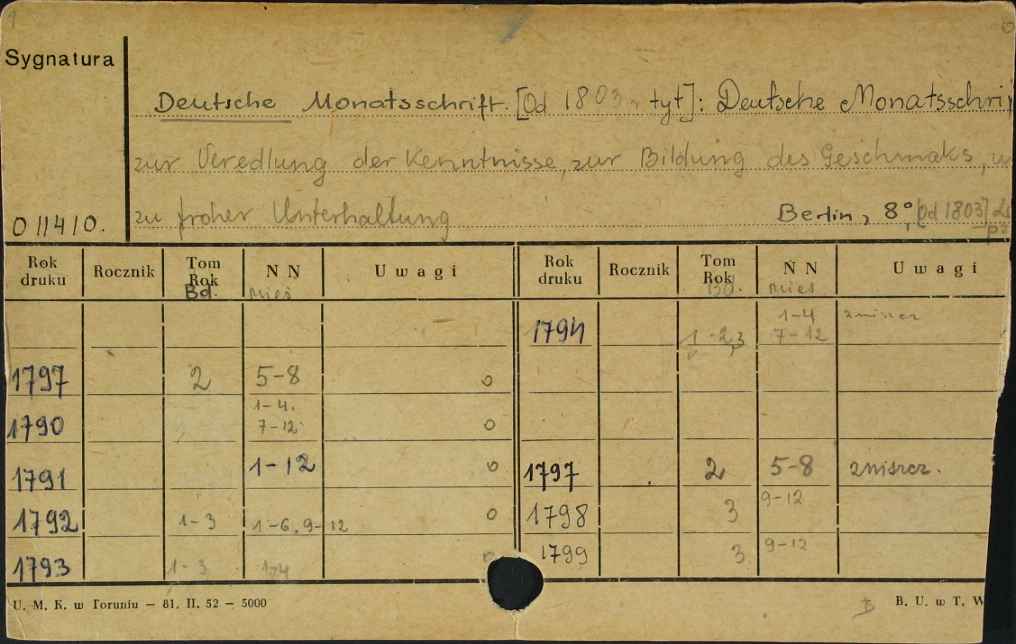 Sygnatura
Deutsche Monatsschrift. [Od 1803 tyt]: Deutsche Monatsschri
zur Veredlung der Kenntnisse, zur Bildung des Geschmaks, u
zu froher Unterhaltung
011410. Berlin, 8° [Od 1803]
Rok druku Rocznik Tom Rok Bd. NN mies Uwagi Rok druku Rocznik Tom Rok Bd. NN mies Uwagi
1794 1-2,3 1-4 7-12 zniszcz
1797 2 5-8 o
1790 1-4. 7-12. o
1791 1-12 o 1797 2 5-8 zniszcz.
1792 1-3 1-6, 9-12 o 1798 3 9-12
1793 1-3 1799 3 9-12
U. M. K. w Toruniu — 81. II. 52 — 5000 B. U. w T. W